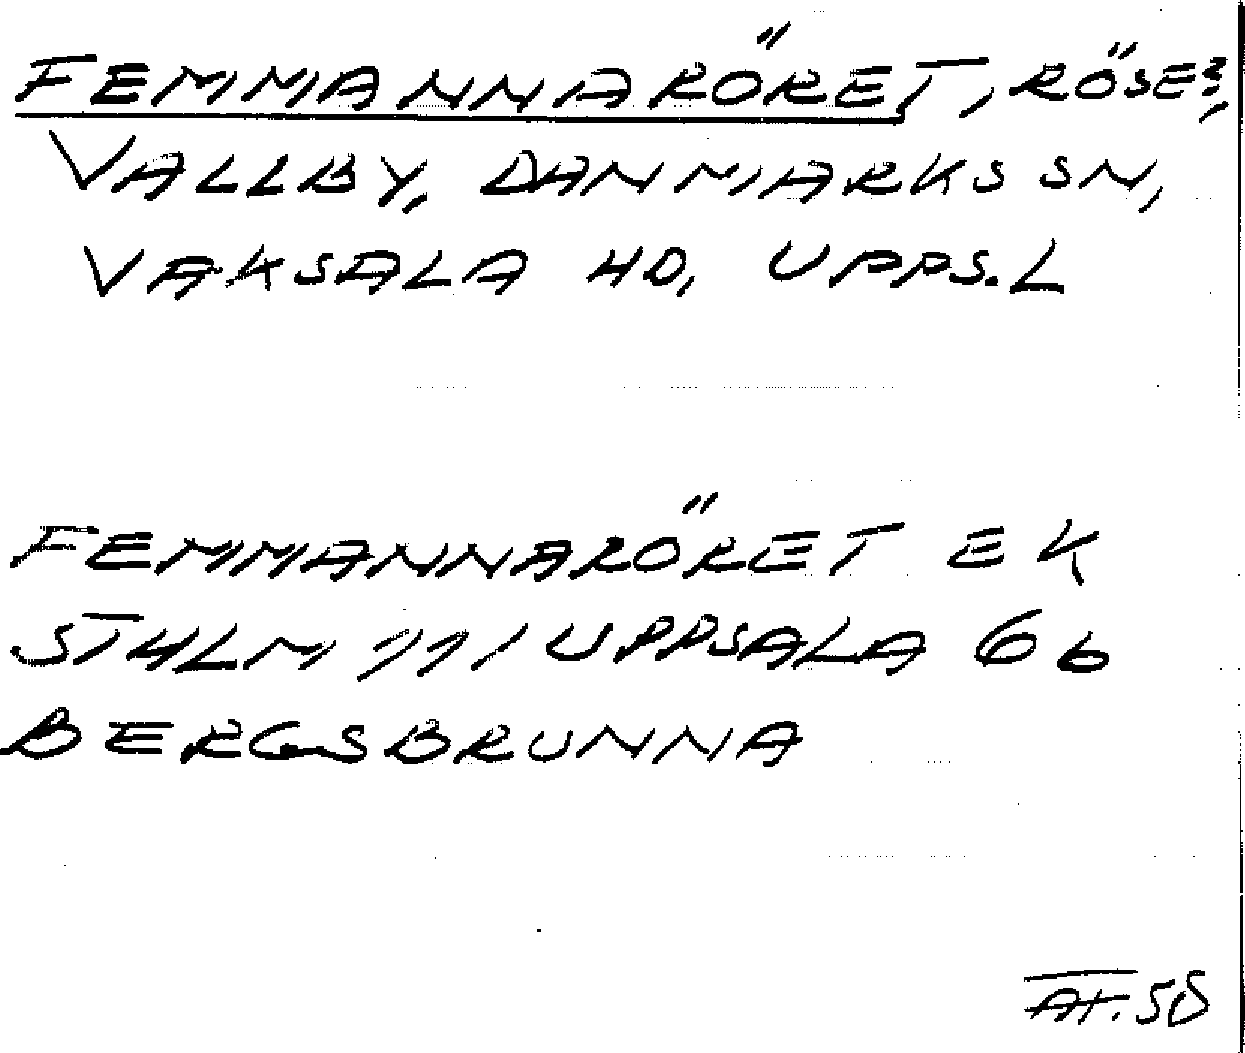 FEMMANNARÖRET, RÖSE?,
VALLBY, DANMARKS SN,
VAKSALA HD, UPPS.L
FEMMANNARÖRET EK
STHLM 111 UPPSALA 6b
BERGSBRUNNA
58